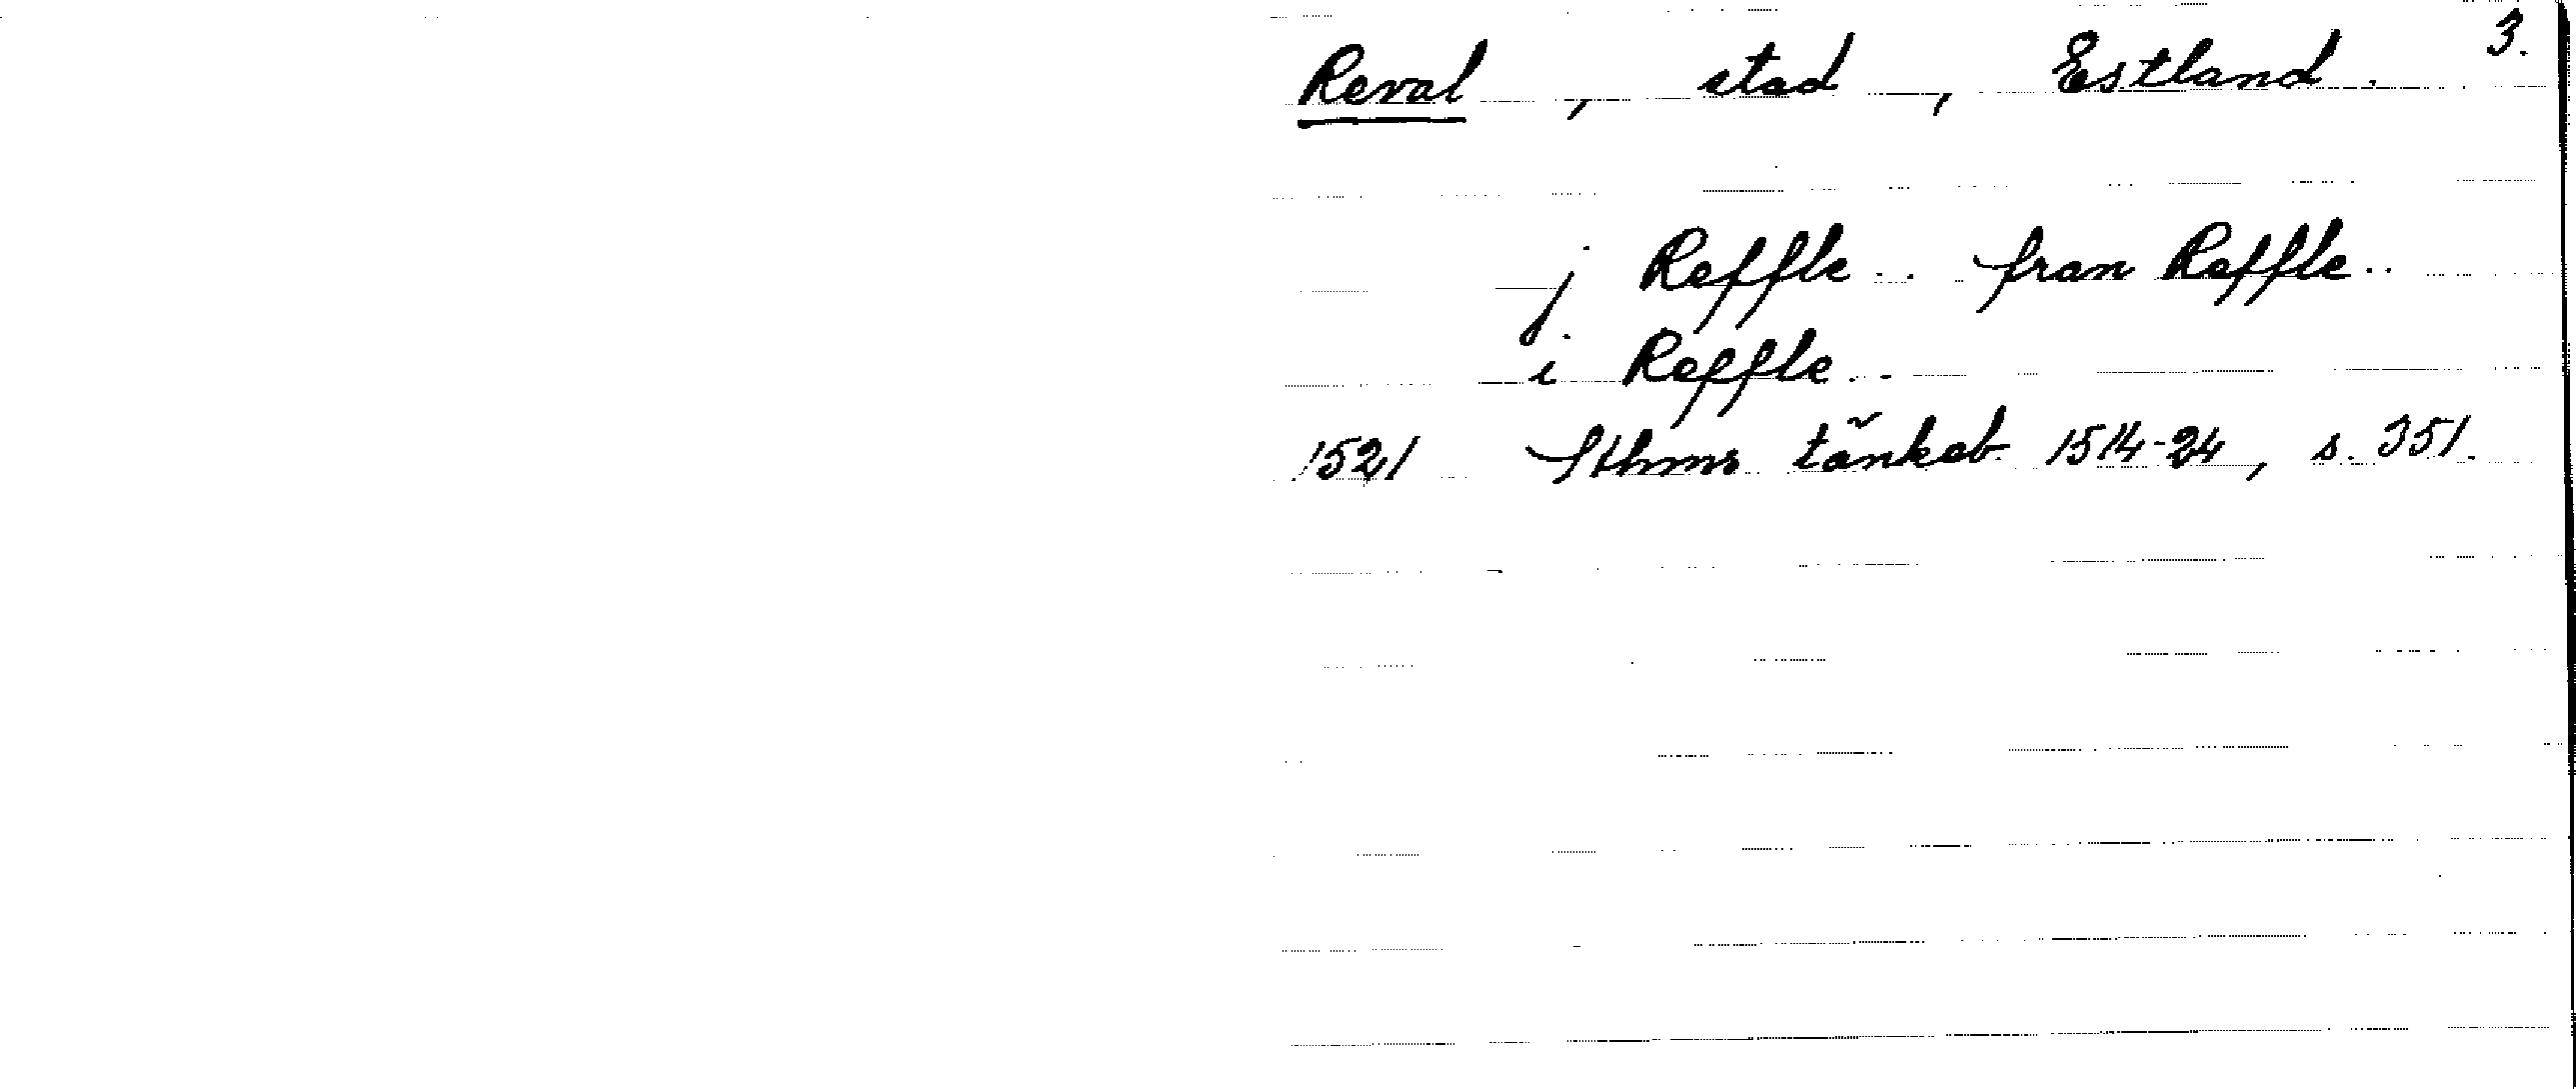 3.
Reval, stad, Estland.
j Reffle.. fran Reffle..
i Reffle..
1521 Sthms tänkeb 1514-24, s. 351.